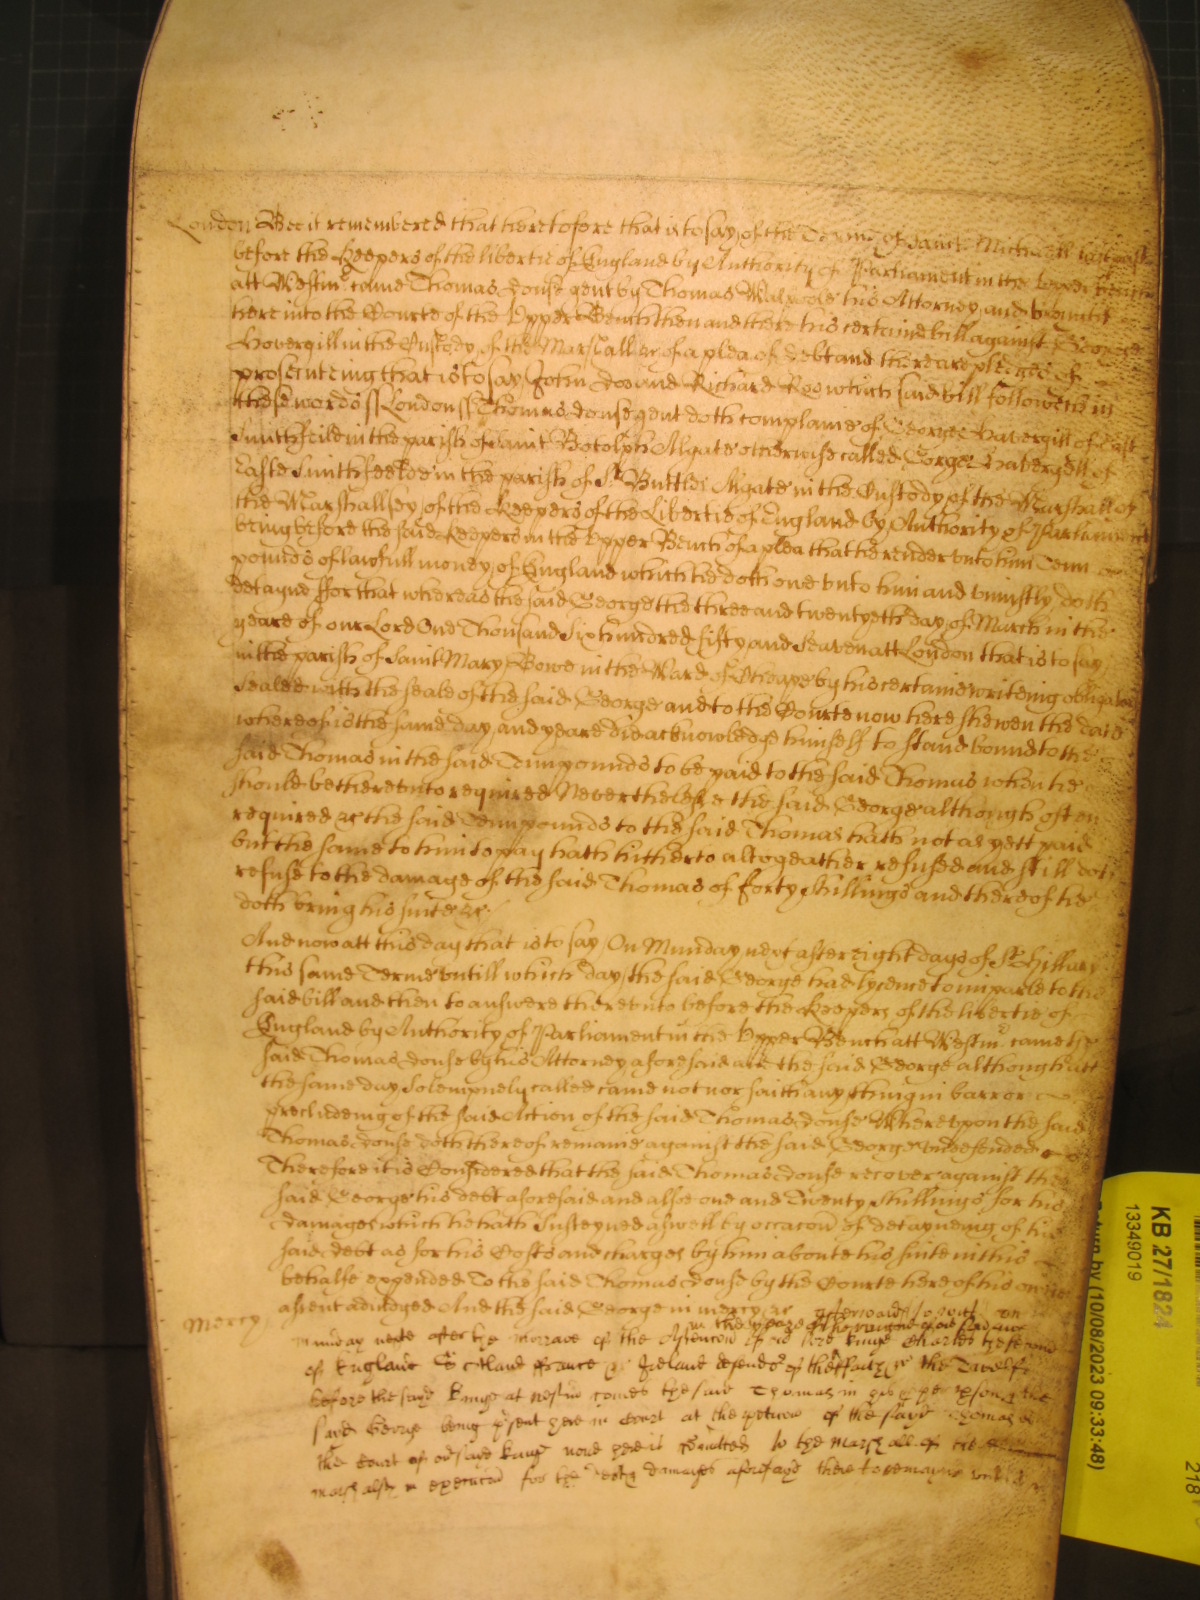 London Bee it remembred that heretofore that is to say of the Terme of Saint Michaell last past
before the Keepers of the libertie of England by Authority of Parliament in the Upper Bench
att Westm came Thomas Douse gent by Thomas Walpole his Attorney and brought
here into the Courte of the Upper Bench then and there his certaine bill against George
Havergill in the Custody of the Marshall &c of a plea of debt and there are pledges of
prosecuteing that is to say John Doo and Richard Roo which said bill followeth in
these words ss London ss Thomas Douse gent doth complaine of George Havergill of East
Smithfeild in the parish of Saint Botolph Algate otherwise called Gorge Havergell of
Easte Smithfeelde in the parish of St Buttles Algate in the Custody of the Marshall of
the Marshallsey of the Keepers of the Libertie of England by Authority of Parliament
being before the said Keepers in the Upper Bench of a plea that he render unto him Tenn
pounds of lawfull money of England which he doth owe unto him and uniustly doth
detayne ffor that whereas the said George the three and twentyeth day of March in the
yeare of our Lord One Thousand Six hundred fifty and Seaven att London that is to say
in the parish of Saint Mary Bowe in the Ward of Cheape by his certaine writeing obligatory
Sealed with the seale of the said George and to the Courte now here shewen the date
whereof is the same day and yeare did acknowledge himself to stand bound to the
said Thomas in the said Tenn pounds to be paid to the said Thomas when he
should be thereunto required Neverthelesse the said George although often
required &c the said Tenn pounds to the said Thomas hath not as yett paid
but the same to him to pay hath hitherto altogeather refused and still doth
refuse to the damage of the said Thomas of forty Shillings and thereof he
doth bring his suite &c
And now att this day that is to say On Munday next after eight days of St Hillary
this same Terme untill which day the said George had lycence to imparle to the
said bill and then to answere thereunto before the Keepers of the libertie of
England by Authority of Parliament in the Upper Bench att Westm came the
said Thomas Douse by his Attorney aforesaid And the said George although att
the same day Solempnely called came not nor saith any thing in barr or
precludeing of the said Action of the said Thomas Douse Whereupon the said
Thomas Douse doth thereof remaine against the said George undefended &c
Therefore it is Considered that the said Thomas Douse recover against the
said George his debt aforesaid and alsoe one and Twenty Shillings for his
damages which he hath Susteyned aswell by occacon of detayneing of the
said debt as for his Costs and charges by him aboute his suite in this
behalfe expended To the said Thomas Douse by the Courte here of his
assent adiudged And the said George in mercy &c afterwards to witt on
Mercy
in the yeare of the raigne of our Lord
munday next after the morrow of the Assencon of our lord kinge Charles the second
of England Scotland ffrance & Ireland defendr of the ffaith &c the Twelfth
before the sayd Kinge at Westm comes the said Thomas in his proper person the
said George being psent here in Court at the peticon of the sayd Thomas
the Court of our sayd kinge now here is Comitted to the Marshall of the
marshalsey in execucon for the debt & damages aforesayd there to remayne untill
KB 27/1824
13349019
(10/08/2023 09:33:48)
218